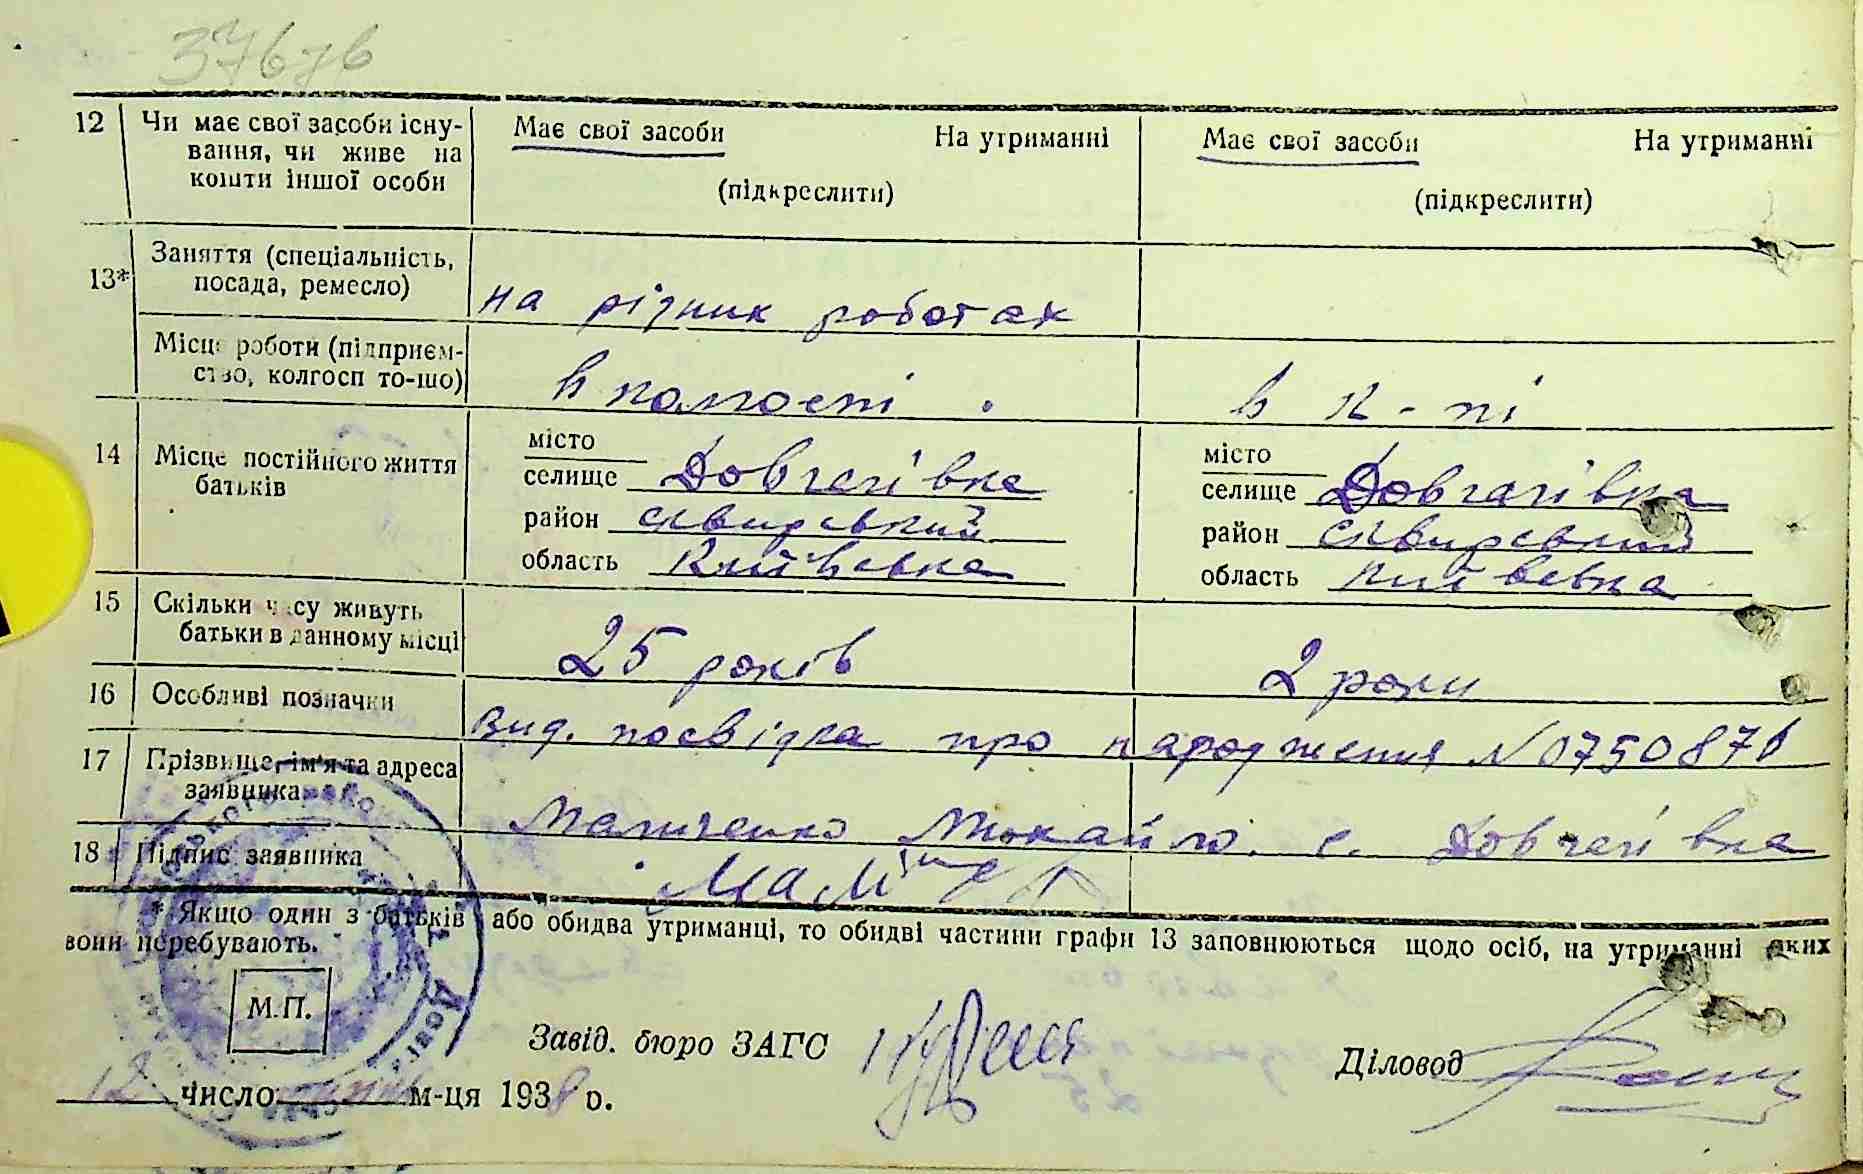 37676
12 Чи має свої засоби існу-
вання, чи живе на
кошти іншої особи
Має свої засоби На утриманні
(підкреслити)
Має свої засоби На утриманні
(підкреслити)
13* Заняття (спеціальність,
посада, ремесло)
на різних роботах
Місце роботи (підприєм-
ство, колгосп то-що)
в колгоспі.
в к-пі
14 Місце постійного життя
батьків
місто
селище Довгалівка
район Сквирський
область Київська
місто
селище Довгалівка
район Сквирський
область Київська
15 Скільки часу живуть
батьки в данному місці
25 років
2 роки
16 Особливі позначки
Вид. посвідка про народження №
17 Прізвище, ім'я та адреса
заявника
Михайло. с. Довгалівка
18 Підпис заявника
* Якщо один з батьків або обидва утриманці, то обидві частини графи 13 заповнюються щодо осіб, на утриманні яких
вони перебувають.
М.П.
Завід. бюро ЗАГС
Діловод
12 число м-ця 1938 р.